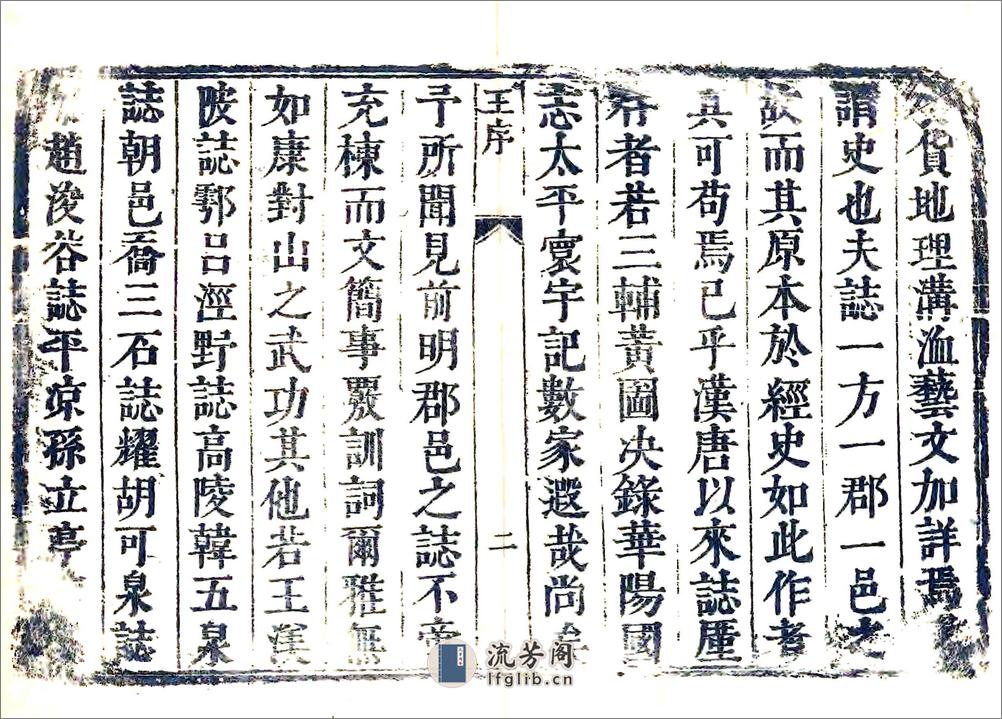 貨地理溝洫藝文加詳焉
謂史也夫誌一方一郡一邑之
故而其原本於經史如此作者
其可苟焉已乎漢唐以來誌厪
存者若三輔黃圖决錄華陽國
志太平寰宇記數家邈哉尚矣
王序
二
予所聞見前明郡邑之誌不啻
充棟而文簡事覈訓詞爾雅無
如康對山之武功其他若王渼
陂誌鄠呂涇野誌高陵韓五泉
誌朝邑喬三石誌耀胡可泉誌
趙浚谷誌平凉孫立亭
流芳阁
lfglib.cn